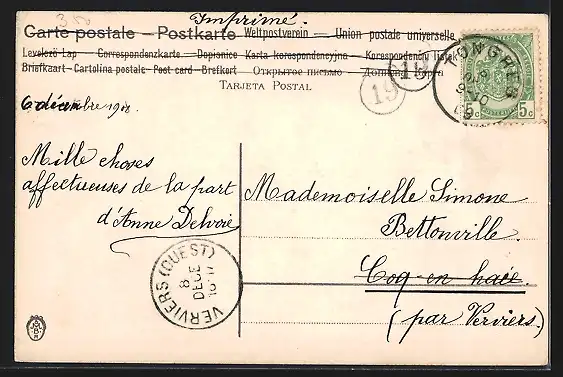 Imprimé.
Carte postale — Postkarte Weltpostverein — Union postale universelle
Levelező-Lap — Correspondenzkarte — Dopisnice Karta korespondencyjna — Korespondenčný lístek
Briefkaart — Cartolina postale — Post card — Brefkort — Открытое письмо — Дописна карта
TARJETA POSTAL
6 décembre
19
19
TONGRES
9-10
09
5c 5c
Mille choses
affectueuses de la part
d'Anne Delvoie
Mademoiselle Simone
Bettonville.
Coq-en-haie.
(par Verviers.)
VERVIERS (OUEST)
8
DECE